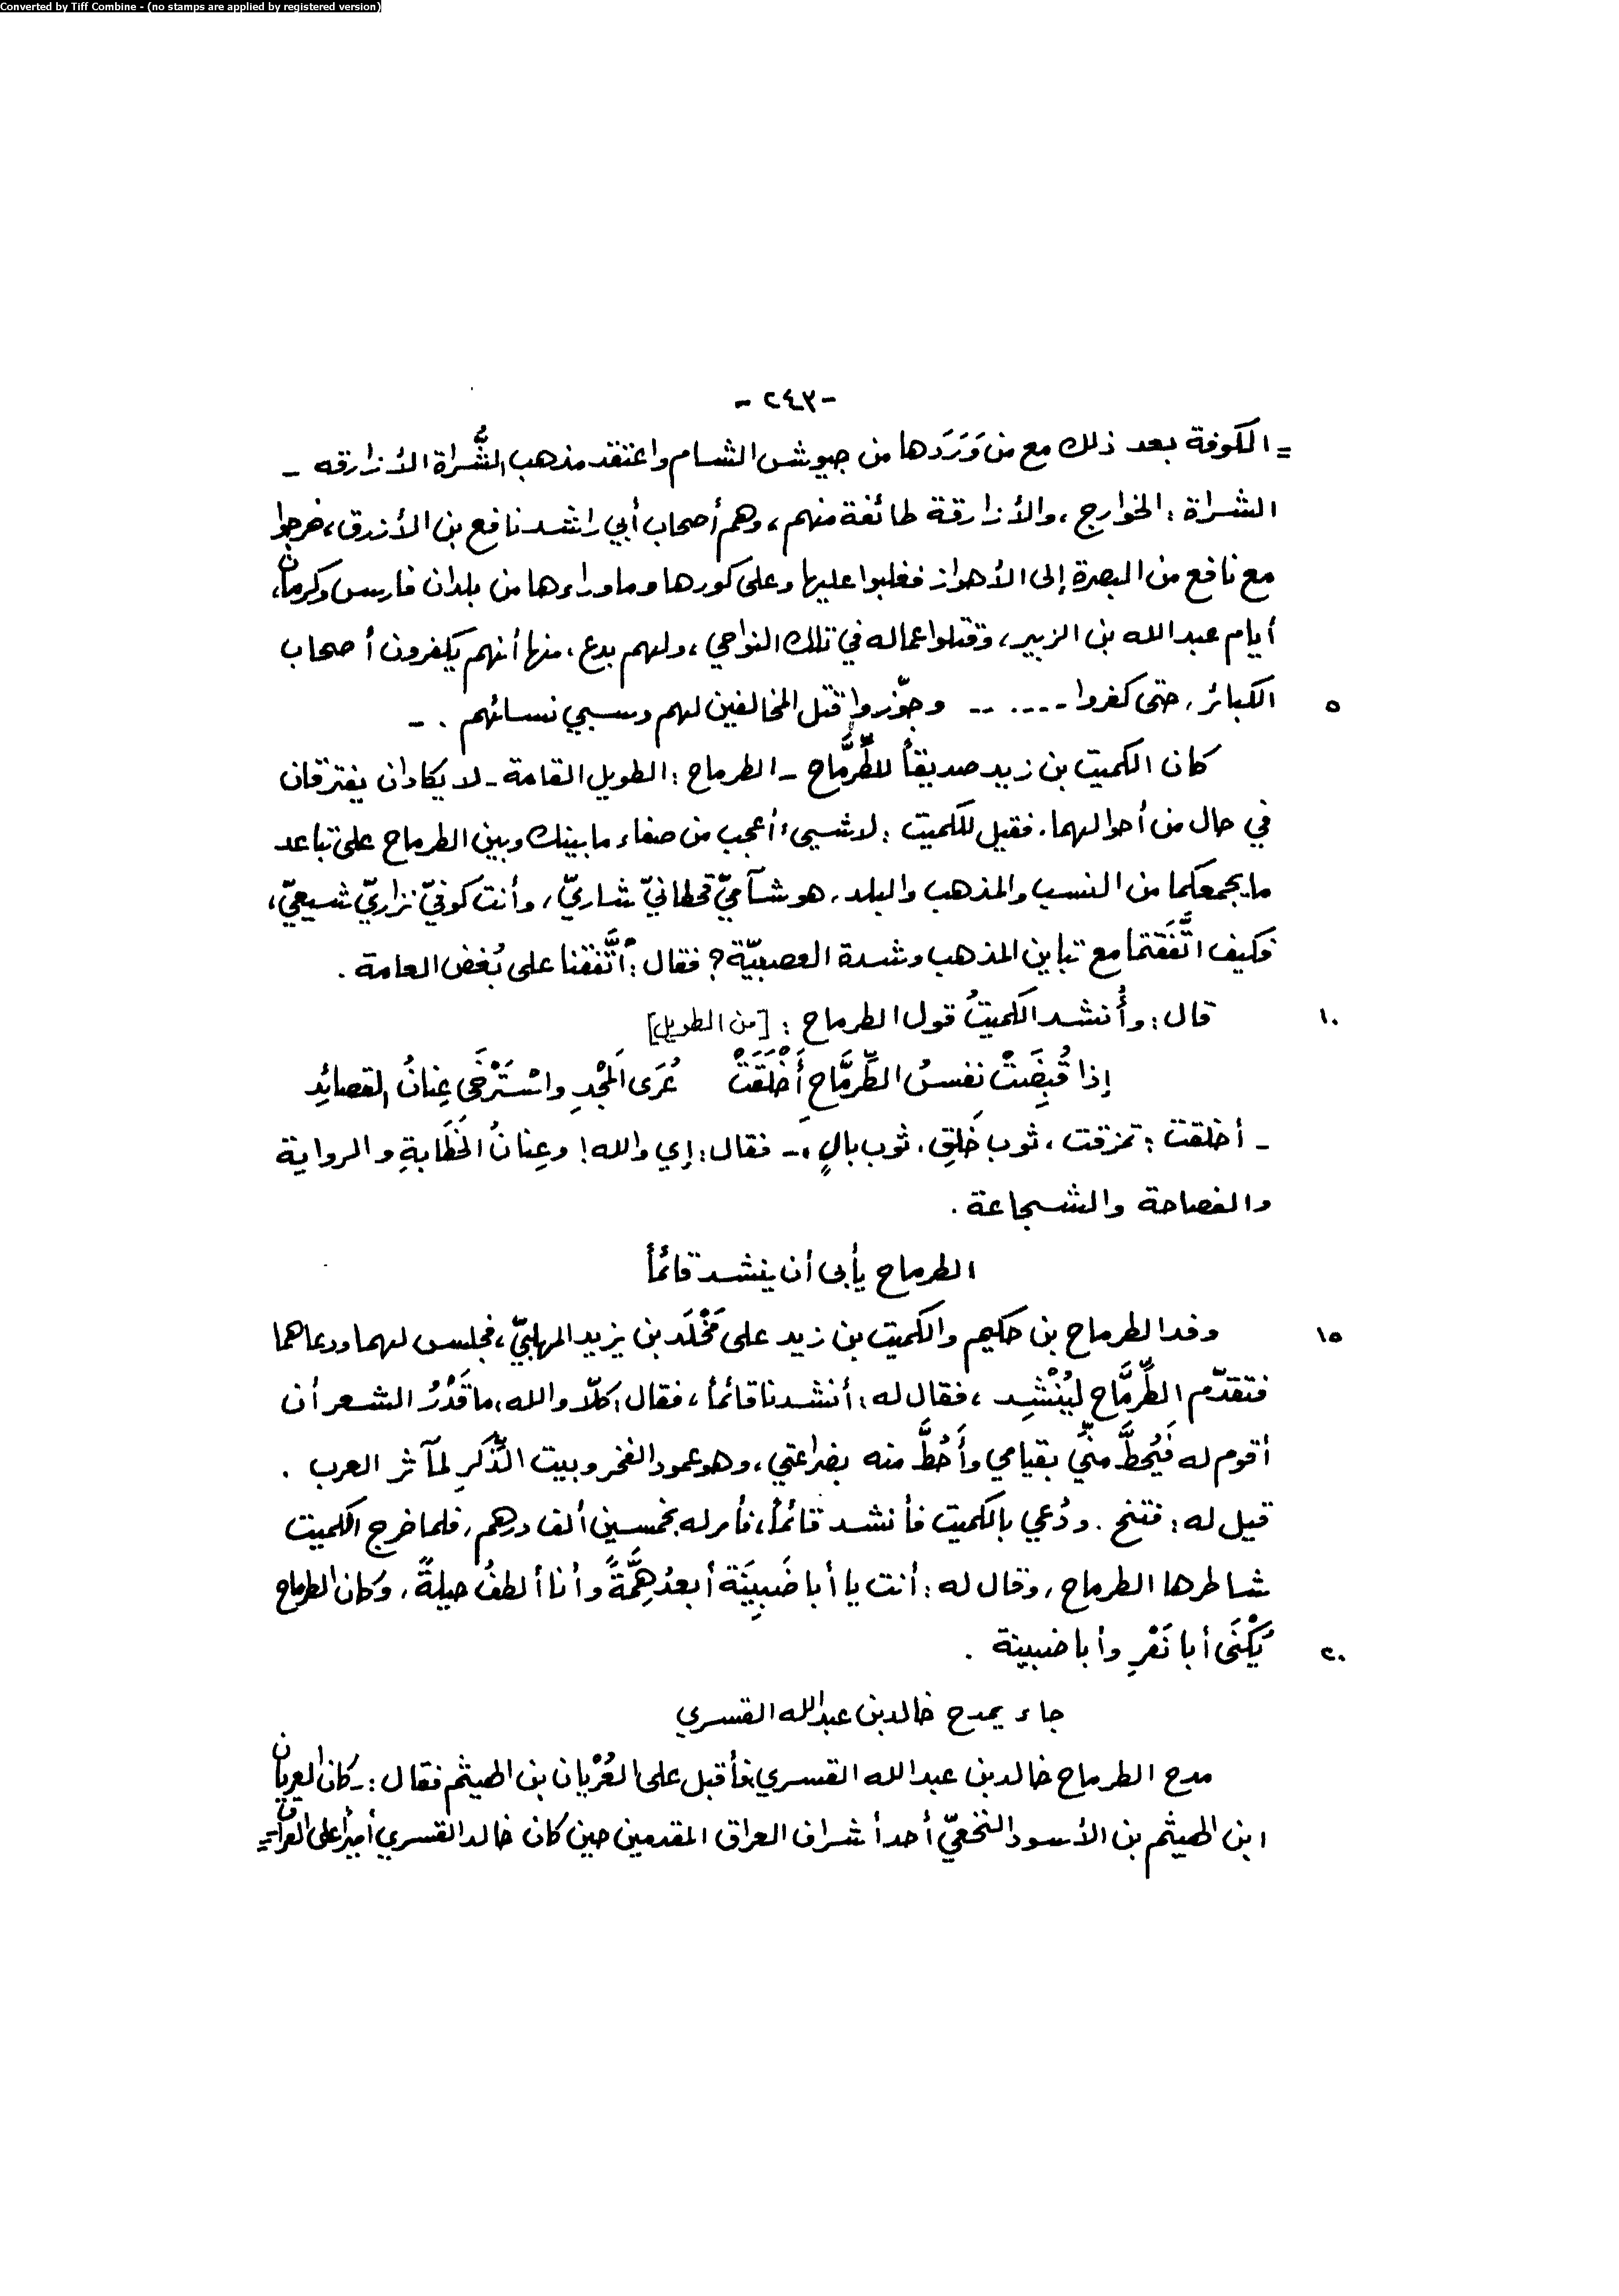 Converted by Tiff Combine - (no stamps are applied by registered version)
- ٢٤٣ -
= الكوفة بعد ذلك مع من وَرَدَها من جيوش الشام واعتقد مذهب الشُّراة الأزارقه -
الشراة : الخوارج ، والأزارقة طائفة منهم ، وهم أصحاب أبي راشد نافع بن الأزرق ، خرجوا
مع نافع من البصرة إلى الأهواز فغلبوا عليها وعلى كورها وما وراءها من بلدان فارس وكرمان،
أيام عبد الله بن الزبير ، وقتلوا عماله في تلك النواحي ، ولهم بدع ، منها أنهم يكفرون أصحاب
٥ الكبائر ، حتى كفروا ------ وجوّزوا قتل المخالفين لهم وسبي نسائهم . -
كان الكميت بن زيد صديقاً للطِّرِمَّاح - الطرماح : الطويل القامة - لا يكادان يفترقان
في حال من أحوالهما . فقيل للكميت : لا شيىء أعجب من صفاء ما بينك وبين الطرماح على تباعد
ما يجمعكما من النسب والمذهب والبلد ، هو شآميّ قحطانيّ شاريّ ، وأنت كوفيّ نزاريّ شيعيّ،
فكيف اتَّفَقتما مع تباين المذهب وشدة العصبيّة ؟ فقال : اتَّفقنا على بُغض العامة .
١٠ قال : وأُنشد الكميتُ قول الطرماح : [من الطويل]
إذا قُبِضَتْ نفسُ الطِّرِمَّاحِ أَخْلَقَتْ عُرَى المَجْدِ واسْتَرْخَى عِنانُ القصائدِ
- أخلقت : تمزقت ، ثوب خَلِق ، ثوب بالٍ ،- فقال : إي والله ! وعِنانُ الخَطَابةِ والرواية
والفصاحة والشجاعة .
الطرماح يأبى أن ينشد قائماً
١٥ وفد الطرماح بن حكيم والكميت بن زيد على مَخْلَد بن يزيد المهلبيّ ، فجلس لهما ودعاهما
فتقدّم الطِّرِمَّاح ليُنْشِد ، فقال له : أنشدنا قائماً ، فقال : كلّا والله ، ما قَدْرُ الشعر أن
أقوم له فَيُحطَّ منّي بقيامي وأَحُطَّ منه بضراعتي ، وهو عمود الفخر وبيت الذِّكرِ لمآثر العرب .
قيل له : فتنح . ودُعي بالكميت فأنشد قائماً ، فأمر له بخمسين ألف درهم ، فلما خرج الكميت
شاطرها الطرماح ، وقال له : أنت يا أبا ضَبِيبَنة أبعدُ هِمَّةً وأنا ألطفُ حيلةً ، وكان الطرماح
٢٠ يُكْنَى أبا نَفْرٍ وأبا ضبينة .
جاء يمدح خالد بن عبد الله القسري
مدح الطرماح خالد بن عبد الله القسري فأقبل على العُرْيان بن الهيثم فقال : - كان العريان
ابن الهيثم بن الأسود النخعيّ أحد أشراف العراق المقدمين حين كان خالد القسري أميرًا على العراق =